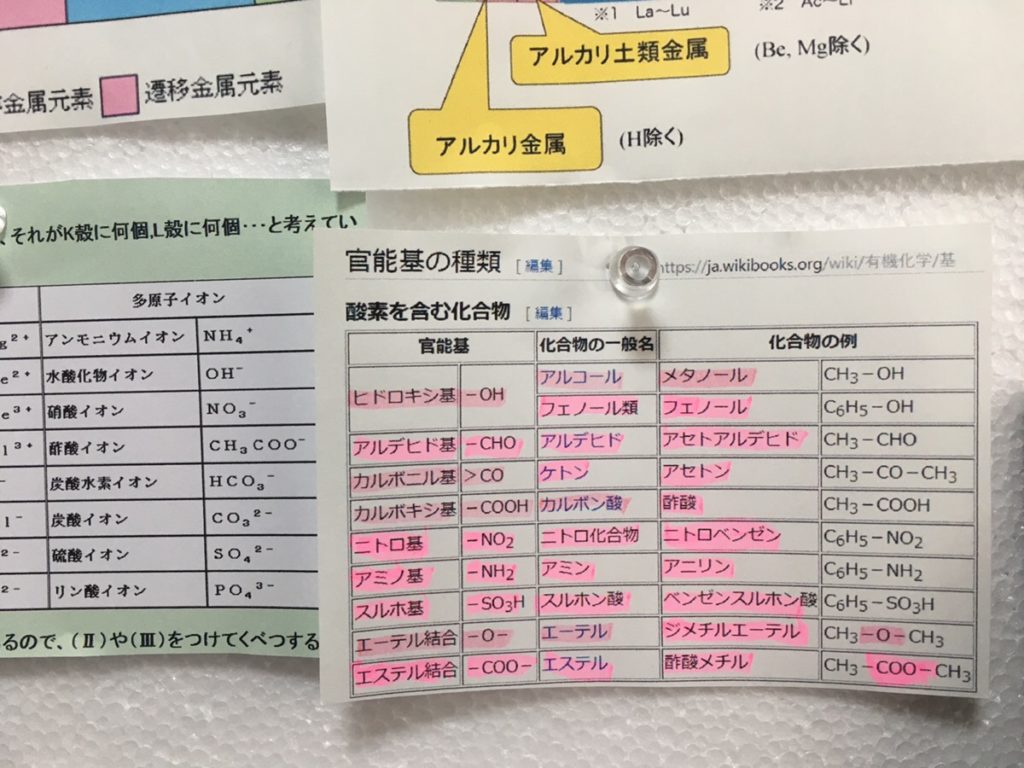 ※1 La~Lu
アルカリ土類金属 (Be, Mg除く)
アルカリ金属 (H除く)
金属元素 遷移金属元素
それがK殻に何個,L殻に何個…と考えてい
多原子イオン
アンモニウムイオン NH₄⁺
水酸化物イオン OH⁻
硝酸イオン NO₃⁻
酢酸イオン CH₃COO⁻
炭酸水素イオン HCO₃⁻
炭酸イオン CO₃²⁻
硫酸イオン SO₄²⁻
リン酸イオン PO₄³⁻
るので、(Ⅱ)や(Ⅲ)をつけてくべつする
官能基の種類 [編集] https://ja.wikibooks.org/wiki/有機化学/基
酸素を含む化合物 [編集]
官能基 化合物の一般名 化合物の例
ヒドロキシ基 −OH アルコール メタノール CH₃−OH
フェノール類 フェノール C₆H₅−OH
アルデヒド基 −CHO アルデヒド アセトアルデヒド CH₃−CHO
カルボニル基 >CO ケトン アセトン CH₃−CO−CH₃
カルボキシ基 −COOH カルボン酸 酢酸 CH₃−COOH
ニトロ基 −NO₂ ニトロ化合物 ニトロベンゼン C₆H₅−NO₂
アミノ基 −NH₂ アミン アニリン C₆H₅−NH₂
スルホ基 −SO₃H スルホン酸 ベンゼンスルホン酸 C₆H₅−SO₃H
エーテル結合 −O− エーテル ジメチルエーテル CH₃−O−CH₃
エステル結合 −COO− エステル 酢酸メチル CH₃−COO−CH₃